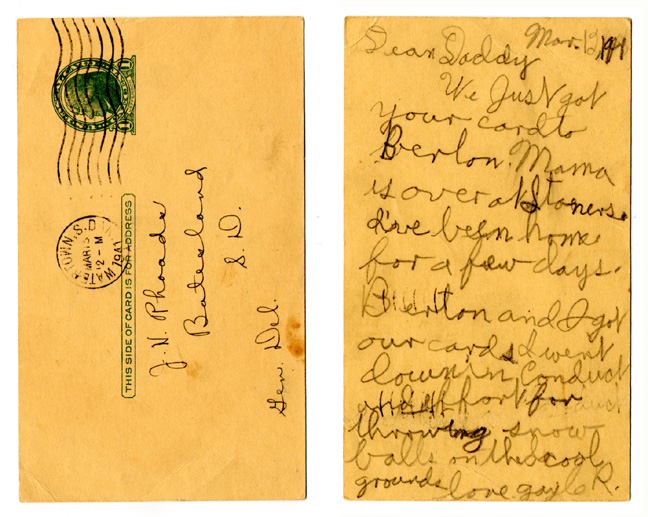 WATERTOWN, S.D.
MAR 13
2 - M
1941
THIS SIDE OF CARD IS FOR ADDRESS
J. H. Rhoads
Batesland
S. D.
Gen. Del.
Mar. 12, 1941
Dear Daddy
We Just got
your card to
Berton. Mama
is over at Stoners.
I've been home
for a few days.
Berton and I got
our cards I went
down in Conduct
and effort for
throwing snow
balls on the scool
grounds love gayle R.